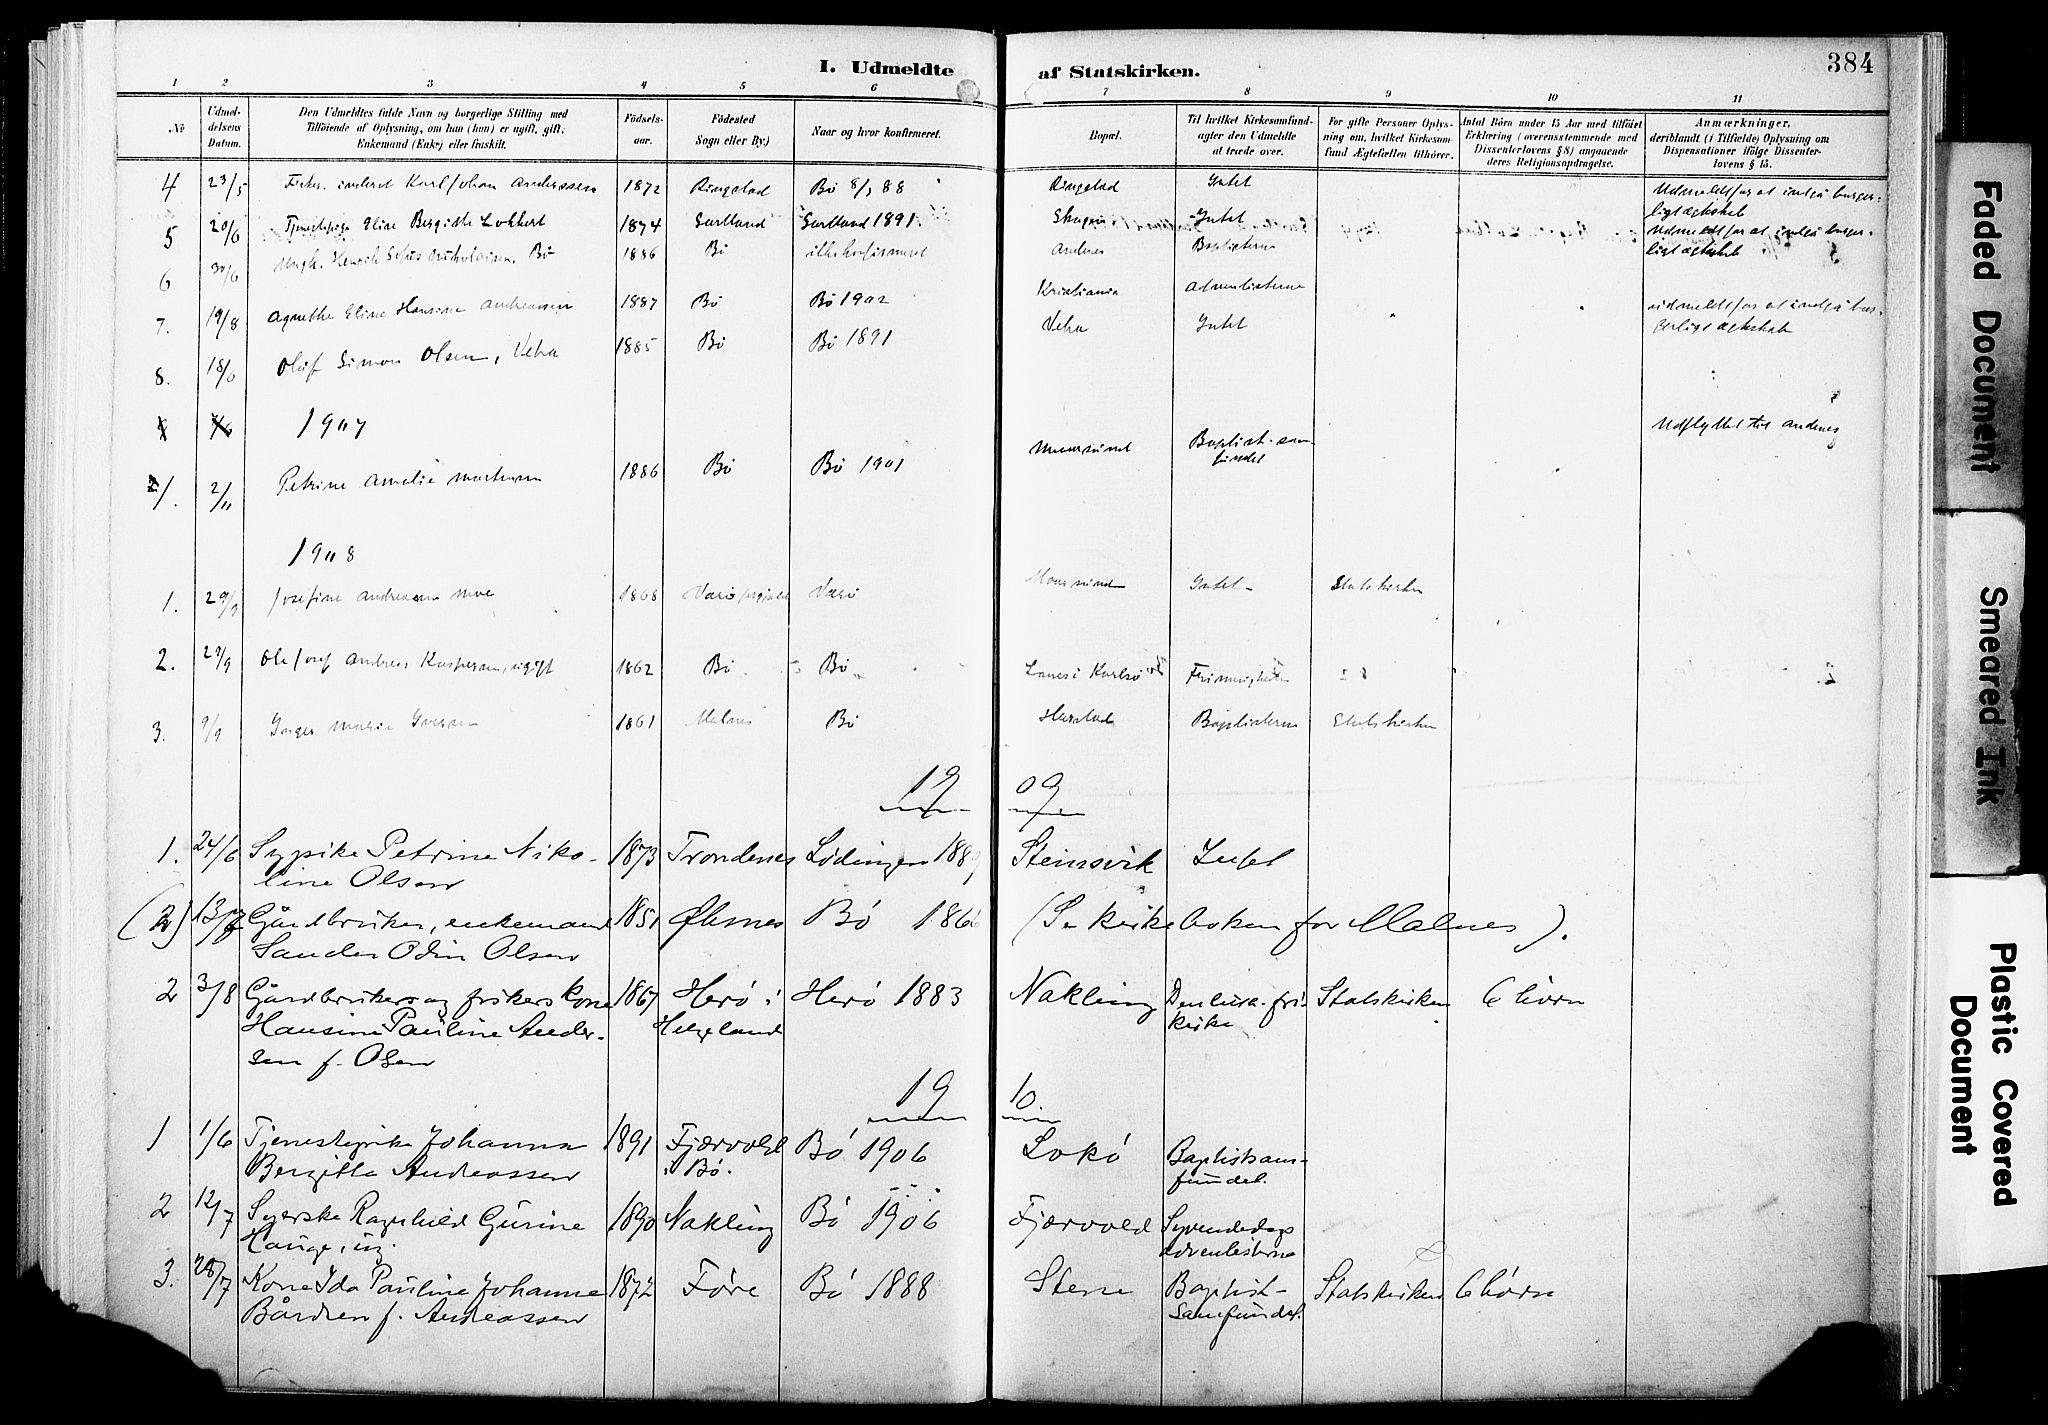 I. Udmeldte af Statskirken.
384
1 2 3 4 5 6 7 8 9 10 11
No
Udmel-
delsens
Datum.
Den Udmeldtes fulde Navn og borgerlige Stilling med
Tilföiende af Oplysning, om han (hun) er ugift, gift,
Enkemand (Enke) eller fraskilt.
Födsels-
aar.
Födested
Sogn eller By.)
Naar og hvor konfirmeret.
Bopæl.
Til hvilket Kirkesamfund
agter den Udmeldte
at træde over.
For gifte Personer Oplys-
ning om, hvilket Kirkesam-
fund Ægtefællen tilhörer.
Antal Börn under 15 Aar med tilföiet
Erklæring (overensstemmende med
Dissenterlovens § 8) angaaende
deres Religionsopdragelse.
Anmærkninger,
deriblandt (i Tilfælde) Oplysning om
Dispensationer ifölge Dissenter-
lovens § 15.
4 23/5 Karl Johan Anderssen 1872 Ringstad Bö 8/7 88 Ringstad Intet Udmeldt for at indgå borger-
ligt ægteskab
5 20/6 Tjenestepige Elise Bergitte Lokkert 1874 Sortland Sortland 1891 Skagen Intet Udmeldt for at indgå borger-
ligt ægteskab
6 30/6 Ungk. Henrik Sofus Nikolaisen, Bö 1886 Bö ikke konfirmeret Andenes Baptisterne
7. 19/8 Agnethe Eline Hansine Andreassen 1887 Bö Bö 1902 Kristiania Adventisterne
8. 18/6 Oluf Simon Olsen, Vebu 1885 Bö Bö 1891 Vebu Intet udmeldt for at indgå bor-
gerligt ægteskab
1907
1. 2/11 Petrine Amalie Martinsen 1886 Bö Bö 1901 Baptist-sam-
fundet Udflyttet til Andenes
1908
1. 29/9 Josefine Andreassen Moe 1868 Værö Intet Statskirken
2. 29/9 Ole Josef Andreas Kaspersen, ugift 1862 Bö Bö Lanes i Karlsö Frimenigheden
3. 9/9 Inger Marie Iversen 1861 Malnes Bö Harstad Baptisterne Statskirken
19 09
1. 24/6 Sypike Petrine Niko-
line Olsen 1873 Trondenes Lødingen 1889 Steinsvik Intet
(2) 13/7 Gårdbruker, enkemand
Sander Odin Olsen 1851 Øksnes Bö 1866 (Se kirkeboken for Malnes).
2 3/8 Gårdbrukers og fiskers kone
Hansine Pauline Ander-
sen f. Olsen 1867 Herö i
Helgeland Herö 1883 Nakling Den luth. fri-
kirke Statskirken 6 børn
19 10
1 1/6 Tjenestepike Johanna
Bergitta Andreassen 1891 Fjærvold
i Bö. Bö 1906 Lokö Baptistsam-
fundet.
2 12/7 Syerske Ragnhild Gurine
Hauge, ug. 1890 Nakling Bö 1906 Fjærvold Syvendedags
adventisterne
3. 28/7 Kone Ida Pauline Johanne
Bårdsen f. Andreassen 1872 Føre Bö 1888 Stene Baptist-
samfundet. Statskirken 6 børn
Faded Document
Smeared Ink
Plastic Covered
Document